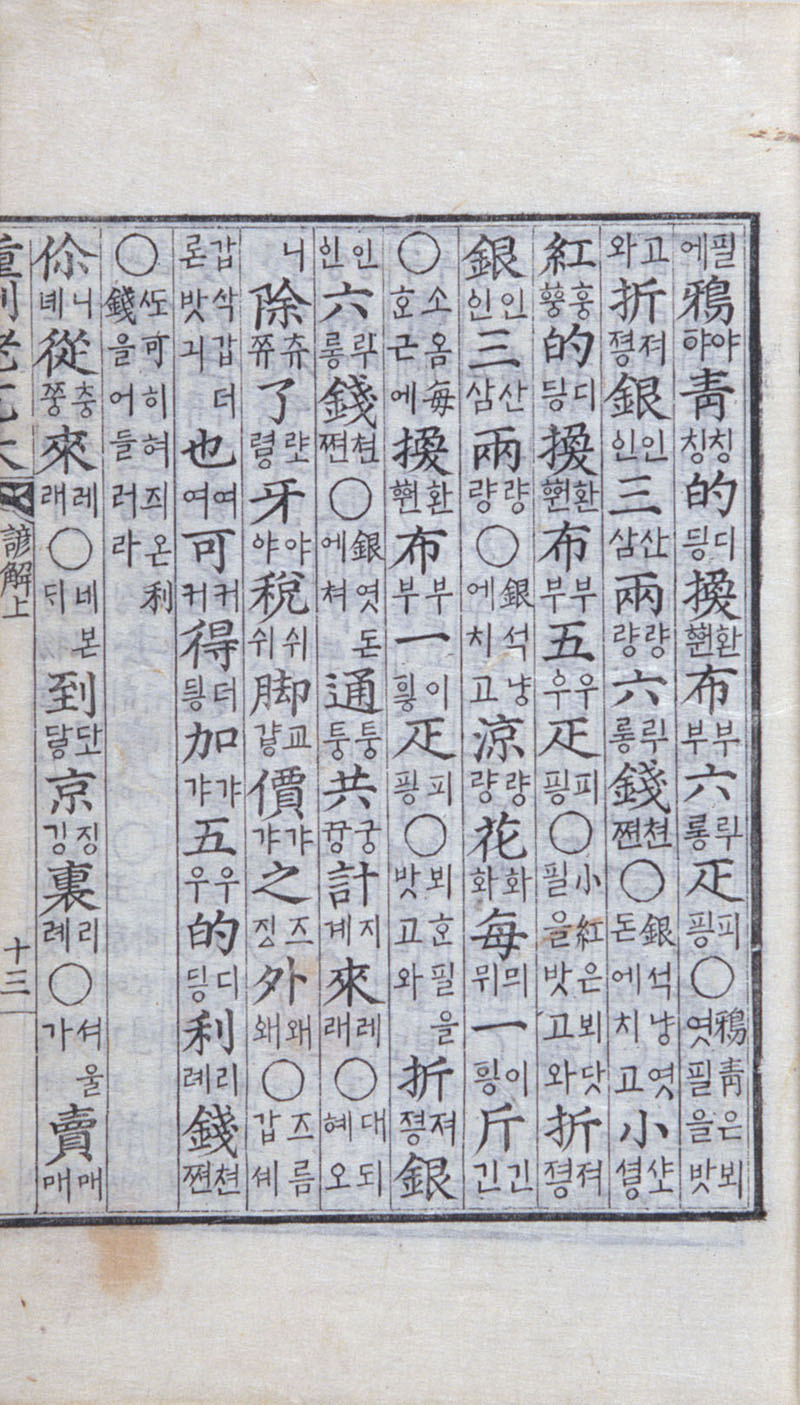 필에鴉햐야靑칭칭的딍디換ᅘᅯᆫ환布부부六룽ᄅᆛ疋핑피○鴉靑은뵈엿필을밧
고와折졍져銀인인三삼산兩량량六룽ᄅᆛ錢쪈쳔○銀석냥엿돈에치고小셩ᄉᅸ
紅ᅘᅮᇰ훙的딍디換ᅘᅯᆫ환布부부五우우疋핑피○小紅은뵈닷필을밧고와折졍져
銀인인三삼산兩량량○銀석냥에치고涼량량花화화每뮈믜一힝이斤긴긴
○소옴每ᄒᆞᆫ근에換ᅘᅯᆫ환布부부一힝이疋핑피○뵈ᄒᆞᆫ필을밧고와折졍져銀
인인六룽ᄅᆛ錢쪈쳔○銀엿돈에쳐通퉁퉁共꿍궁計계지來래레○대되혜오
니除쮸츄了령ᄅᅸ牙야야稅쉬쉬脚걍교價갸갸之징즈外왜왜○즈름갑셰
갑삭갑더론밧긔也여여可커커得듹더加갸갸五우우的딍디利례리錢쪈쳔
○ᄯᅩ可히혀즤온利錢을어들러라
你녜니從쭝충來래레○네본ᄃᆡ到당ᄃᅶ京깅징裏례리○셔울가賣매매
重刊老乞大諺解上 十三